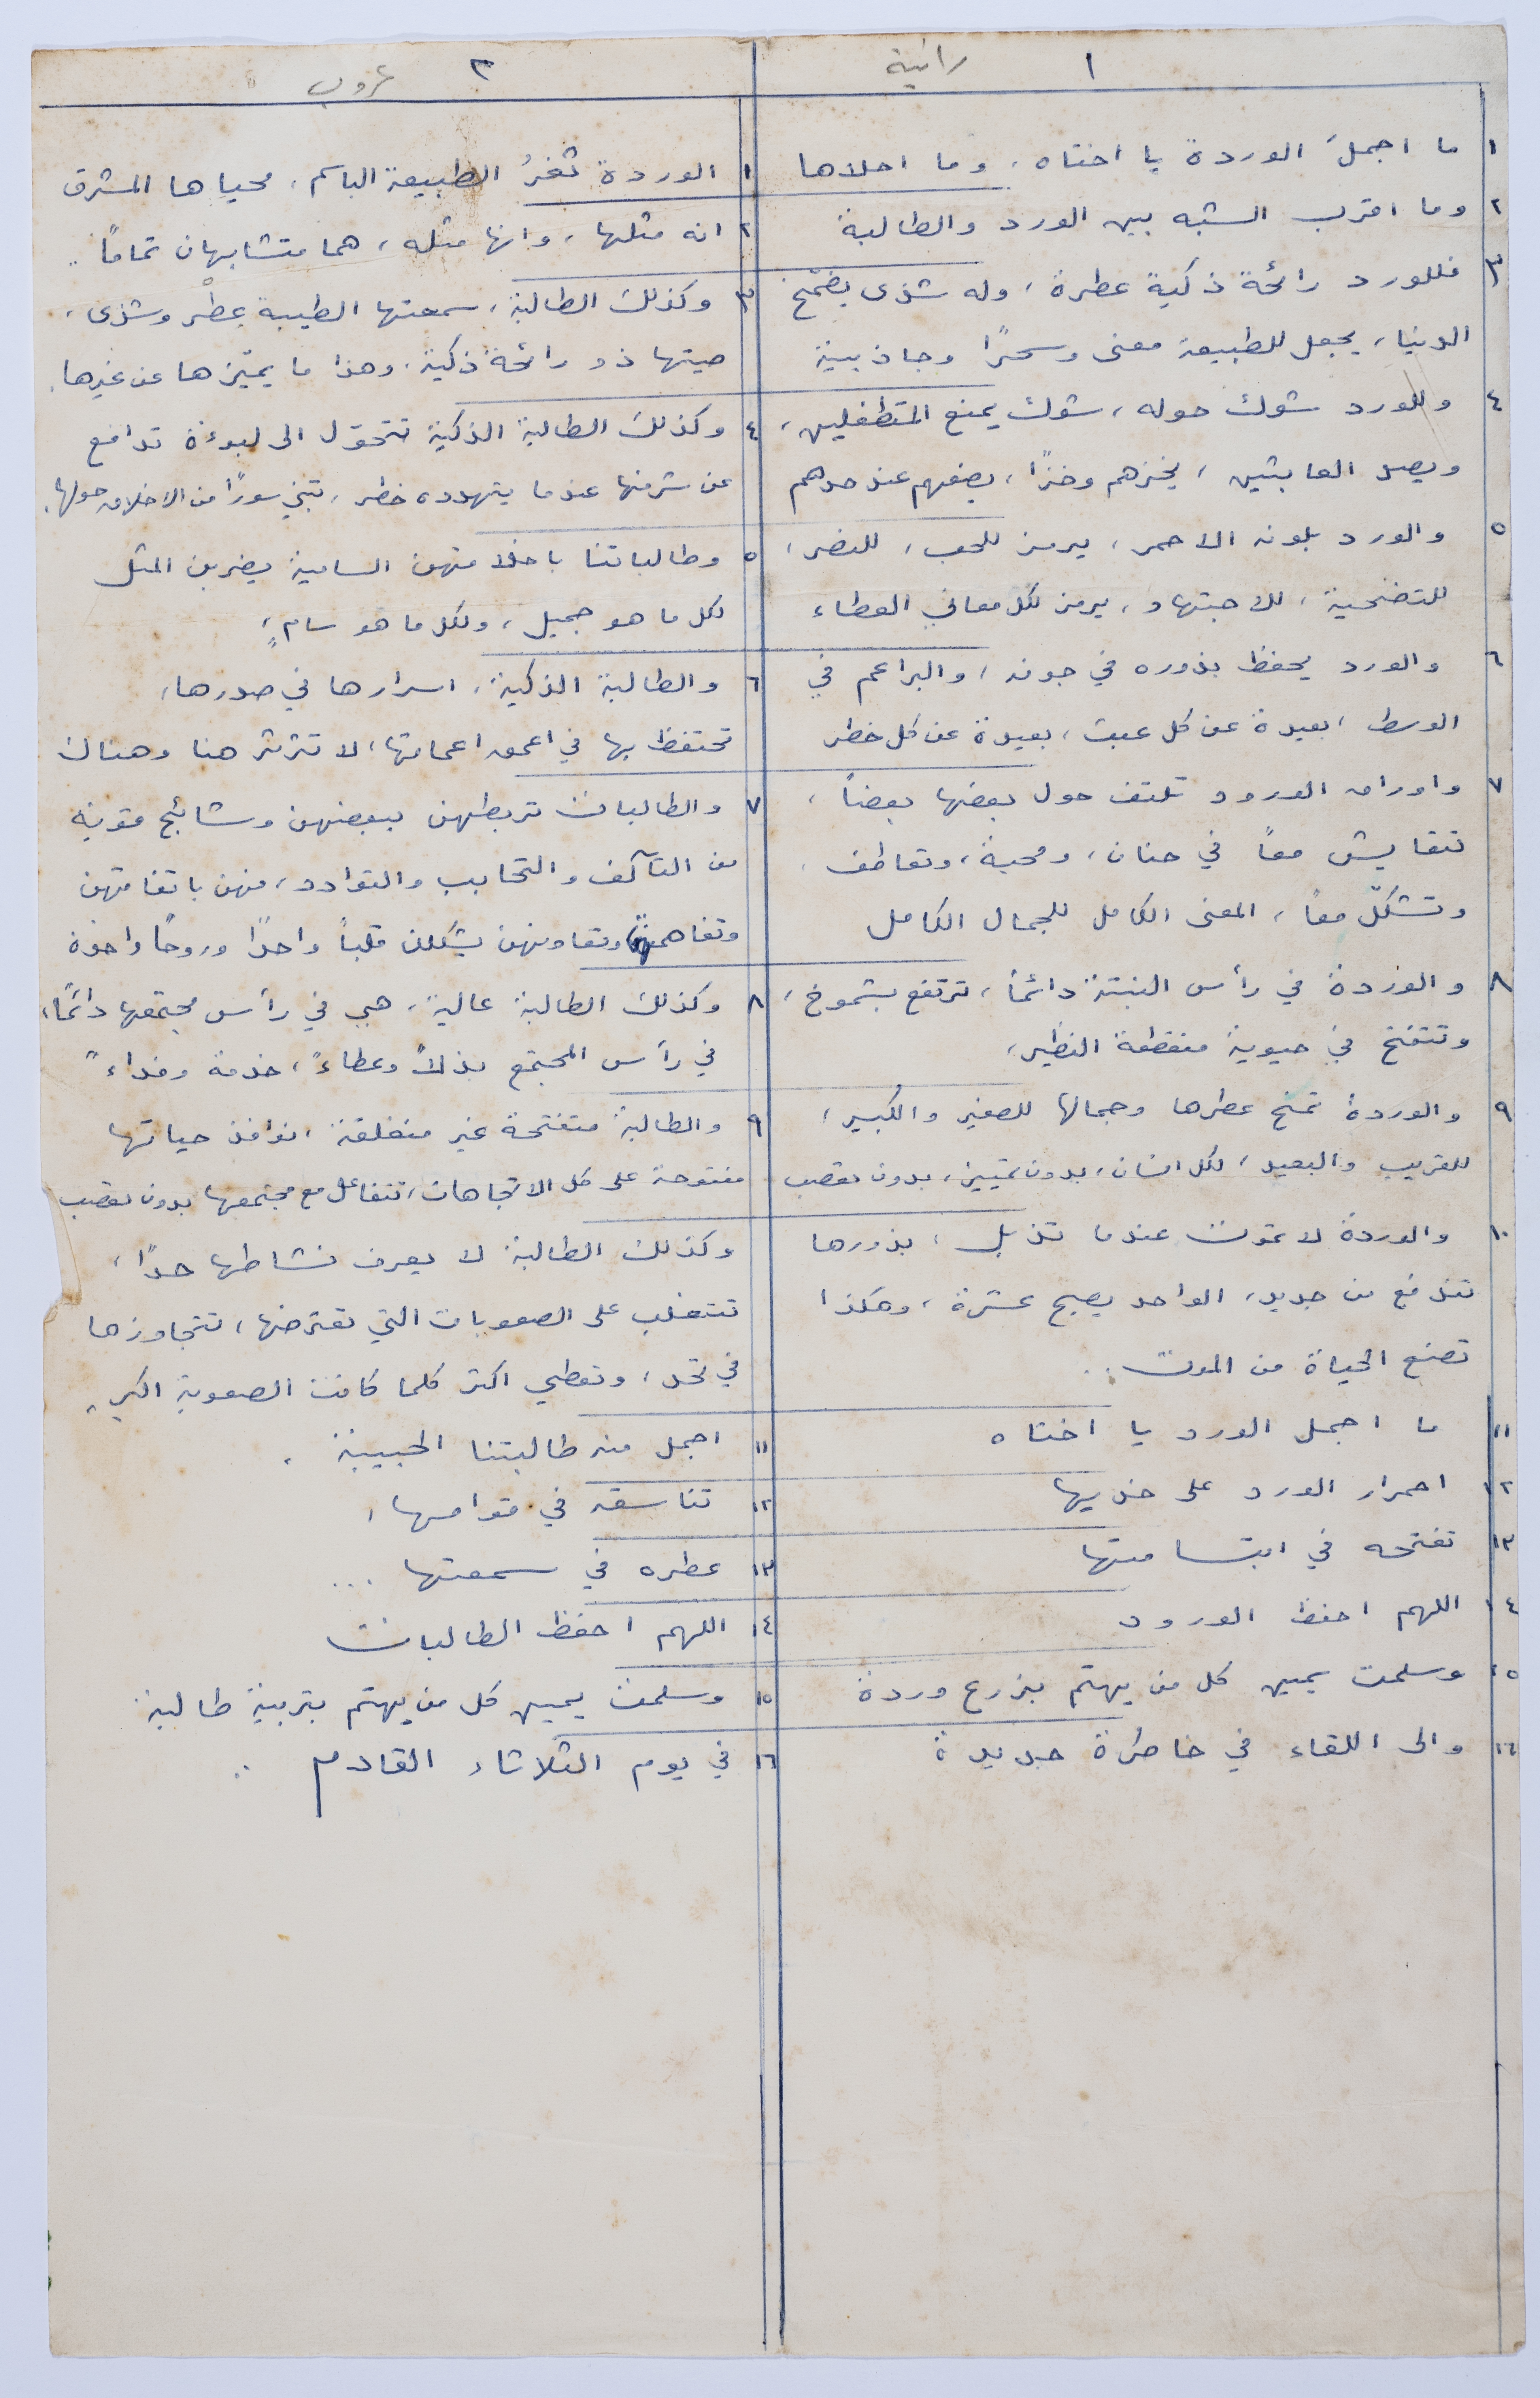 ١ رانية
١ ما اجملَ الوردة يا اختاه، وما احلاها
٢ وما اقرب الشبه بين الورد والطالبة
٣ فللورد رائحة ذكية عطرة، وله شذى يضمّخ
الدنيا، يجعل للطبيعة معنى وسحرًا وجاذبية
٤ وللورد شوك حوله، شوك يمنع المتطفلين،
ويصد العابثين، يخزهم وخزًا، يضعهم عند حدهم
٥ والورد بلونه الاحمر، يرمز للحب، للنصر،
للتضحية، للاجتهاد، يرمز لكل معاني العطاء
٦ والورد يحفظ بذوره في جوفه، والبراعم في
الوسط، بعيدة عن كل عبث، بعيدة عن كل خطر
٧ واوراق الورود تلتف حول بعضها بعضاً،
تتعايش معاً في حنان، ومحبة، وتعاطف،
وتشكلّ معاً، المعنى الكامل للجمال الكامل
٨ والوردة في رأس النبتة دائماً، ترتفع بشموخ،
وتتفتح في حيوية منقطعة النظير،
٩ والوردة تمنح عطرها وجمالها للصغير والكبير،
للقريب والبعيد، لكل انسان، بدون تمييز، بدون تعصب
١٠ والوردة لا تموت عندما تذبل، بذورها
تندفع من جديد، الواحد يصبح عشرة، وهكذا
تصنع الحياة من الموت..
١١ ما اجمل الورد يا اختاه
١٢ احمرار الورد على خديها
١٣ تفتحه في ابتسامتها
١٤ اللهم احفظ الورود
١٥ وسلمت يمين كل من يهتم بزرع وردة
١٦ والى اللقاء في خاطرة جديدة
٢ عروب
١ الوردة ثغرُ الطبيعة الباسم، محياها المشرق
٢ انه مثلها، وانها مثله، هما متشابهان تمامًا..
٣ وكذلك الطالبة، سمعتها الطيبة عِطْر وشذى،
صيتها ذو رائحة ذكية، وهذا ما يميّزها عن غيرها.
٤ وكذلك الطالبة الذكية تتحوّل الى لبوءة تدافع
عن شرفها عندما يتهدده خطر، تبني سورًا من الاخلاق حولها.
٥ وطالباتنا باخلاقهن السامية يضربن المثل
لكل ما هو جميل، ولكل ما هو سامٍ،
٦ والطالبة الذكية، اسرارها في صدرها،
تحتفظ بها في اعمق اعماقها، لا تثرثر هنا وهناك
٧ والطالبات تربطهن ببعضهن وشائج قوية
من التآلف والتحابب والتوادد، فهن باتفاقهن
وتفاهمهن وتعاونهن يشكلن قلباً واحدًا وروحًا واحدة
٨ وكذلك الطالبة عالية، هي في رأس مجتمعها دائمًا،
في رأس المجتمع بذلاً وعطاءً، خدمة وفداءً
٩ والطالبة متفتحة غير منغلقة، نوافذ حياتها
مفتوحة على كل الاتجاهات، تتفاعل مع مجتمعها بدون تعصب
وكذلك الطالبة لا يعرف نشاطها حدًا،
تتغلب على الصعوبات التي تعترضها، تتجاوزها
في تحد، وتعطي اكثر كلما كانت الصعوبة اكبر.
١١ اجمل منه طالبتنا الحبيبة.
١٢ تناسقه في قوامها،
١٣ عطره في سمعتها ...
١٤ اللهم احفظ الطالبات
١٥ وسلمت يمين كل من يهتم بتربية طالبة
١٦ في يوم الثلاثاء القادم ..